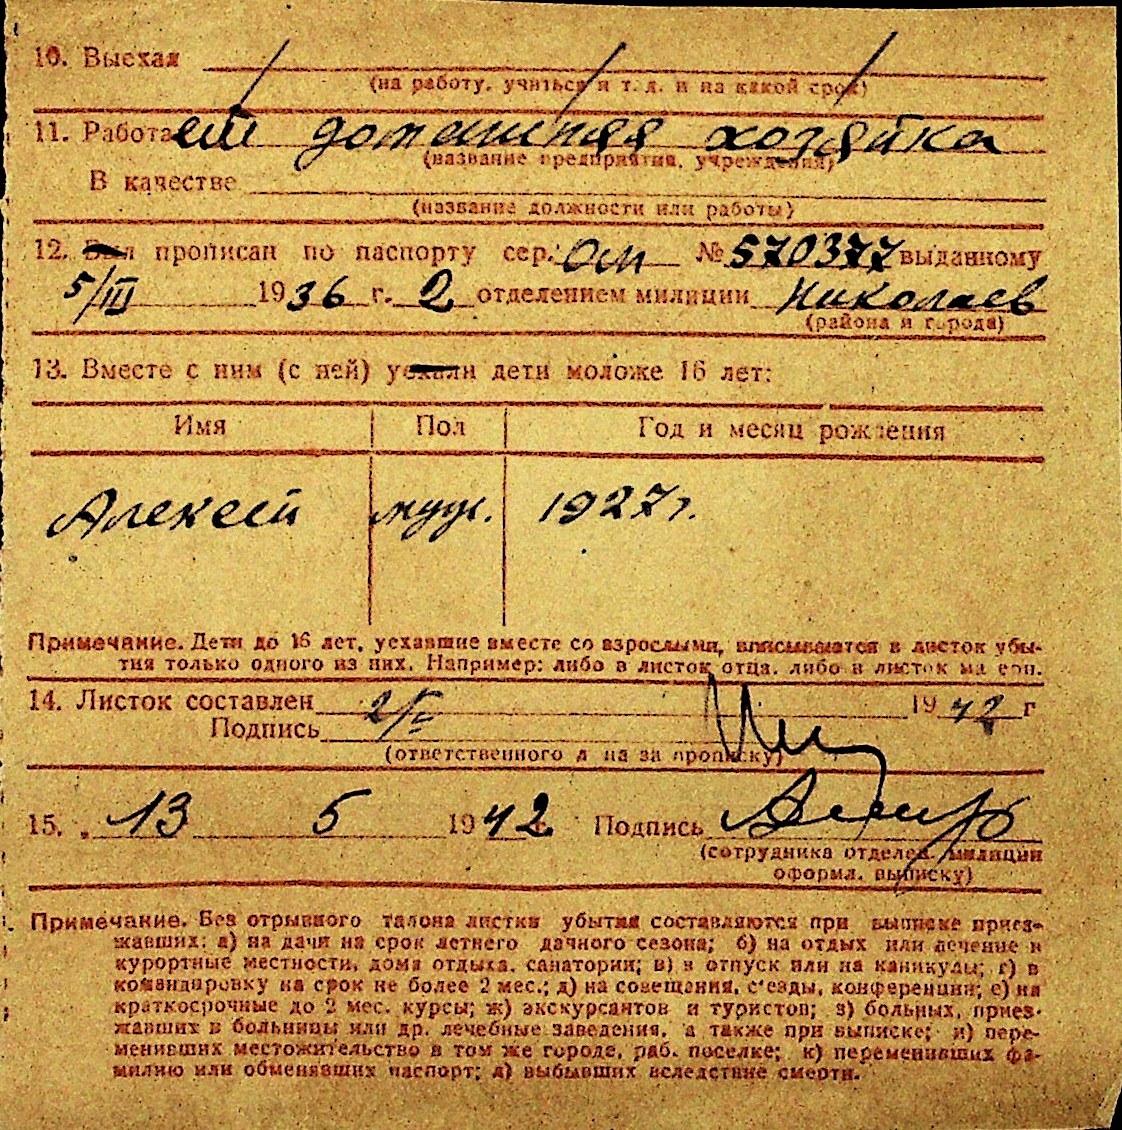 10. Выехал
(на работу, учиться и т. д. и на какой срок)
11. Работает домашняя хозяйка
(название предприятия, учреждения)
В качестве
(название должности или работы)
12. Был прописан по паспорту сер. ОМ № 570377 выданному
5/III 1936 г. 2 отделением милиции Николаев
(района и города)
13. Вместе с ним (с ней) уехали дети моложе 16 лет:
Имя Пол Год и месяц рождения
Алексей муж. 1927 г.
Примечание. Дети до 16 лет, уехавшие вместе со взрослыми, вписываются в листок убы-
тия только одного из них. Например: либо в листок отца, либо в листок ма ери.
14. Листок составлен 2/V 1942 г
Подпись
(ответственного л на за прописку)
15. 13 5 1942 Подпись
(сотрудника отделен. милиции
оформл. выписку)
Примечание. Без отрывного талона листки убытия составляются при выписке приез-
жавших: а) на дачи на срок летнего дачного сезона; б) на отдых или лечение в
курортные местности, дома отдыха, санатории; в) в отпуск или на каникулы; г) в
командировку на срок не более 2 мес.; д) на совещания, с'езды, конференции; е) на
краткосрочные до 2 мес. курсы; ж) экскурсантов и туристов; з) больных, приез-
жавших в больницы или др. лечебные заведения, а также при выписке; и) пере-
менивших местожительство в том же городе, раб. поселке; к) переменивших фа-
милию или обменявших паспорт; л) выбывших вследствие смерти.